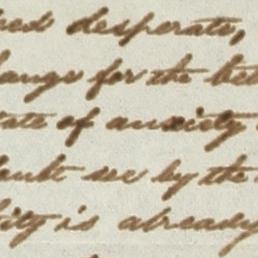 eed desperate,
hange for the bet
tate of anxiety
oubt see by the
ity is already